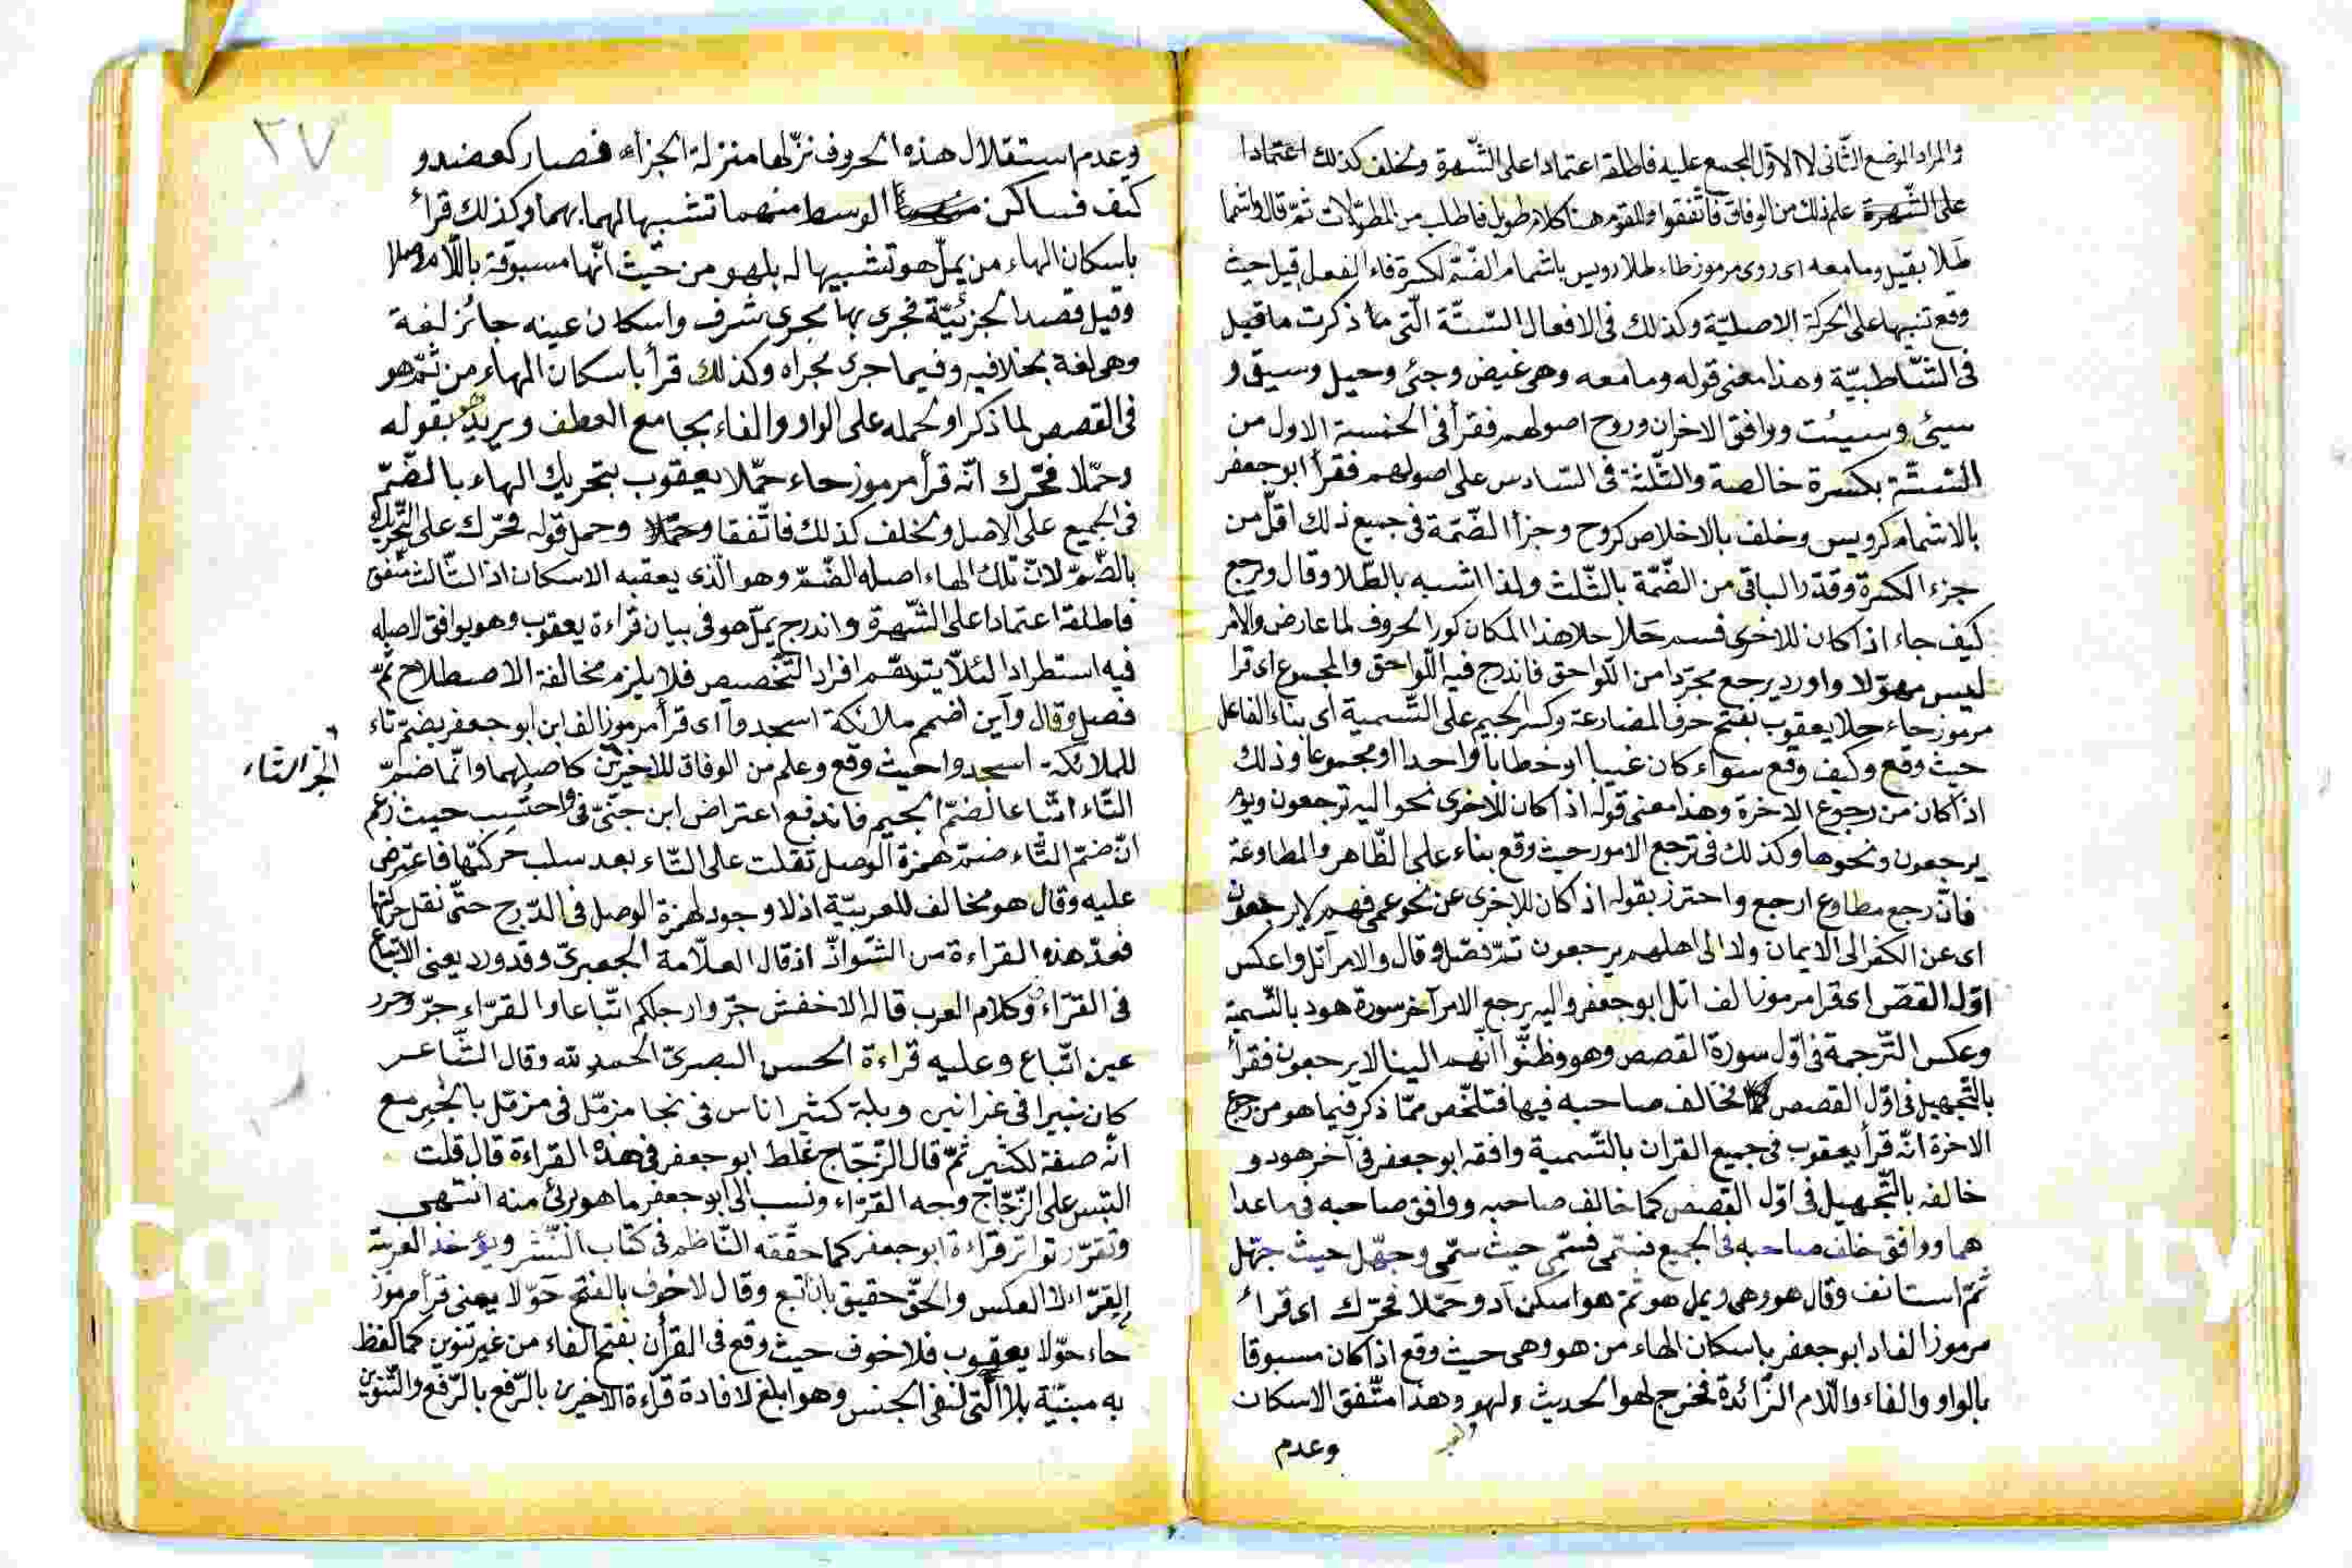 والمراد الموضع الثانى لا الاول المجمع عليه فاطلقه اعتمادا على الشّهرة ولخلف كذلك اعتمادا
على الشّهرة علم ذلك من الوفاق فاتّفقوا وللقوم هنا كلام طويل فاطلب من المطوّلات ثمّ قال واشما
طلا بقيل ومامعه اى روى مرموز طاء طلا رويس باشمام الضّمّة لكسرة فاء الفعل قيل حيث
وقع تنبيها على الحركة الاصليّة وكذلك فى الافعال السّتّة الّتى ما ذكرت ما قيل
فى الشّاطبيّة وهذا معنى قوله ومامعه وهى غيض وجئ وحيل وسيق و
سيئ وسيئت ووافق الاخران وروح اصولهم فقرأ فى الخمسة الاول من
السّتّة بكسرة خالصة والثّلثة فى السّادس على اصولهم فقرأ ابو جعفر
بالاشمام كرويس وخلف بالاخلاص كروح وجزأ الضّمّة فى جميع ذلك اقلّ من
جزء الكسرة وقدّر الباقى من الضّمّة بالثّلث ولذا اشبه بالطّلا وقال ويرجع
كيف جاء اذا كان للاخرى فسم حَلا حلا هذا المكان كور الحروف لما عارض والامر
ليس مهوّلا واورد يرجع مجرّدا من اللّواحق فاندرج فيه اللّواحق والمجموع اى قرا
مرموز حاء حلا يعقوب بفتح حرف المضارعة وكسر الجيم على التّسمية اى بناء الفاعل
حيث وقع وكيف وقع سواء كان غيبا او خطابا واحدا او مجموعا وذلك
اذا كان من رجوع الاخرة وهذا معنى قوله اذا كان للاخرى نحو اليه ترجعون ويوم
يرجعون ونحوها وكذلك فى ترجع الامور حيث وقع بناء على الظّاهر والمطاوعة
فانّ رجع مطاوع ارجع واحترز بقوله اذا كان للاخرى عن نحو عمى فهم لا يرجعون
اى عن الكفر الى الايمان ولا الى اهلهم يرجعون ثمّ فصّل وقال والامر اتل واعكس
اوّل القصّ اى قرا مرموز الف اتل ابو جعفر واليه يرجع الامر آخر سورة هود بالتّسمية
وعكس التّرجمة فى اوّل سورة القصص وهو وظنّوا انّهم الينا لا يرجعون فقرأ
بالتّجهيل فى اوّل القصص مخالف صاحبه فيها فتلخّص ممّا ذكر فيما هو من رجوع
الاخرة انّه قرأ يعقوب فى جميع القران بالتّسمية وافقه ابو جعفر فى آخر هود و
خالفه بالتّجهيل فى اوّل القصص كما خالف صاحبه ووافق صاحبه فى ماعدا
هما ووافق خلف صاحبه فى الجميع فسمّى حيث سمّى وجهّل حيث جهّل
ثمّ استانف وقال هو وهى ويمل هو ثمّ هو اسكن اد وحمّلا فحرّك اى قرأ
مرموز الف اد ابو جعفر باسكان الهاء من هو وهى حيث وقع اذا كان مسبوقا
بالواو والفاء واللّام الزّائدة فخرج لهو الحديث ولهو وهذا متّفق الاسكان
وعدم
٣٧
وعدم استقلال هذه الحروف نزّلها منزلة الجزاء فصار كعضد و
كتف فساكن الوسط منهما تشبيها لهما بهما وكذلك قرأ
باسكان الهاء من يملّ هو تشبيها له بلهو من حيث انّها مسبوقة باللّام وصلا
وقيل قصد الجزئيّة فجرى بها مجرى شرف واسكان عينه جائز لغة
وهى لغة بخلافيه وفيما جرى مجراه وكذلك قرأ باسكان الهاء من ثمّ هو
فى القصص لما ذكر او لحمله على الواو والفاء بجامع العطف ويريد بقوله
وحمّلا فحرّك انّه قرأ مرموز حاء حمّلا يعقوب بتحريك الهاء بالضّمّ
فى الجميع على الاصل ولخلف كذلك فاتّفقا وحمّلا وحمل قوله فحرّك على التّحريك
بالضّمّ لانّ تلك الهاء اصله الضّمّ وهو الّذى يعقبه الاسكان اذ الثّالث متّفق
فاطلقه اعتمادا على الشّهرة واندرج يملّ هو فى بيان قراءة يعقوب وهو يوافق لاصله
فيه استطرادا لئلّا يتوهّم افراد التّخصيص فلا يلزم مخالفة الاصطلاح ثمّ
فصل وقال وأين اضمم ملائكة اسجدوا اى قرأ مرموز الف اين ابو جعفر بضمّ تاء
للملائكة اسجدوا حيث وقع وعلم من الوفاق للاخرين كاصلهما وانّما ضمّ
التّاء اتّباعا لضمّ الجيم فاندفع اعتراض ابن جنّىّ فى واحتسب حيث زعم
انّ ضمّ التّاء ضمّ همزة الوصل نقلت على التّاء بعد سلب حركتها فاعترض
عليه وقال هو مخالف للعربيّة اذ لا وجود لهمزة الوصل فى الدّرج حتّى نقل حركتها
فعدّ هذه القراءة من الشّواذّ اذ قال العلّامة الجعبرىّ وقد ورد يعنى الاتباع
فى القرّاء وكلام العرب قاله الاخفش جرّ وارجلكم اتّباعا والقرّاء جرّ وحرد
عين اتّباع وعليه قراءة الحسن البصرىّ الحمد لله وقال الشّاعر
كان ثبيرا فى عرانين وبله كثير اناس فى بجا مزمّل فى مزمّل بالجرّ مع
انّه صفة لكثير ثمّ قال الزّجّاج غلط ابو جعفر فى هذه القراءة قال قلت
التبس على الزّجّاج وجه القرّاء ونسب الى ابو جعفر ما هو برئ منه انتهى
وتقرّر تواتر قراءة ابو جعفر كما حقّقه النّاظم فى كتاب النّشر ويؤخذ العربيّة
القرّاء لا العكس والحقّ حقيق بان اتّبع وقال لا خوف بالفتح حوّلا يعنى قرأ مرموز
حاء حوّلا يعقوب فلا خوف حيث وقع فى القرآن بفتح الفاء من غير تنوين كما لفظ
به مبنيّة بلا الّتى لنفى الجنس وهو ابلغ لافادة قراءة الاخرين بالرّفع بالرّفع والتّنوين
التاء